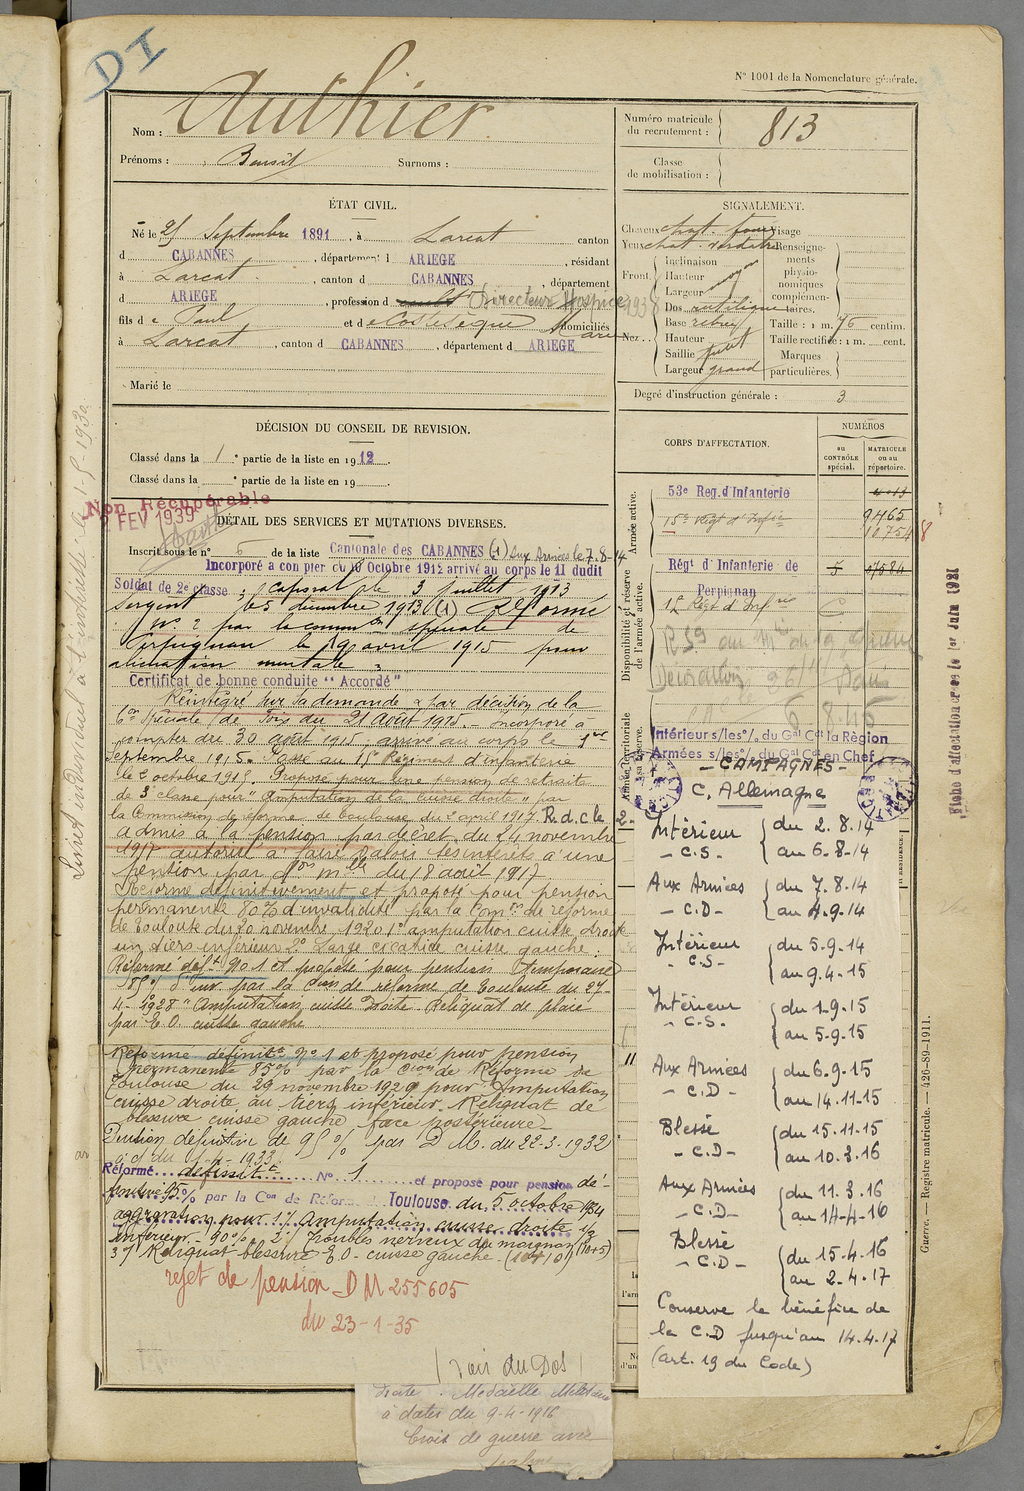 DI
N° 1001 de la Nomenclature générale.
Nom : Authier
Prénoms : Benoit Surnoms :
Numéro matricule du recrutement : 813
Classe de mobilisation :
ÉTAT CIVIL.
Né le 25 Septembre 1891, à Larcat canton
d CABANNES, département d ARIEGE, résidant
à Larcat, canton d CABANNES, département
d ARIEGE, profession d Directeur Hospice 1938
fils de Paul et de Costesèque Marie domiciliés
à Larcat, canton d CABANNES, département d ARIEGE
Marié le
SIGNALEMENT.
Cheveux chat. foncé Visage
Yeux chat. verdâtre Renseignements physionomiques complémentaires.
Front. Inclinaison
Hauteur moyen
Largeur
Nez.. Dos rectiligne
Base relevé Taille : 1 m. 76 centim.
Hauteur Taille rectifiée : 1 m. cent.
Saillie petit Marques particulières.
Largeur grand
Degré d'instruction générale : 3
DÉCISION DU CONSEIL DE REVISION.
Classé dans la 1e partie de la liste en 1912.
Classé dans la e partie de la liste en 19
Livret individuel
1930
Non Récupérable
FEV 1939
DÉTAIL DES SERVICES ET MUTATIONS DIVERSES.
Inscrit sous le n° 6 de la liste Cantonale des CABANNES (1) Aux Armées le 7-8-14
Incorporé à compter du 10 Octobre 1912 arrivé au corps le 11 dudit
Soldat de 2e classe, Caporal le 3 juillet 1913
Sergent le 5 décembre 1913 (1) Réformé
N° 2 par la common spéciale de
Perpignan le 19 avril 1915 pour
aliénation mentale.
Certificat de bonne conduite "Accordé"
Réintégré sur sa demande par décision de la
Con spéciale de Foix du 21 août 1915. Incorporé à
compter du 30 août 1915, arrivé au corps le 1er
septembre 1915. Passé au 15e Régiment d'infanterie
le 2 octobre 1915. Proposé pour une pension de retraite
de 3e classe pour "amputation de la cuisse droite" par
la Commission de réforme de Toulouse du 2 avril 1917. R.d.c le
admis à la pension par décret du 24 novembre
1917 autorisé à faire valoir ses intérêts à une
pension par Don mlle du 18 août 1917.
Réformé définitivement et proposé pour pension
permanente 80% d'invalidité par la Comon de réforme
de Toulouse du 20 novembre 1920 1° amputation cuisse droite
un tiers inférieur 2° Large cicatrice cuisse gauche.
Réformé déft N° 1 et proposé pour pension temporaire
85% d'inv. par la Cion de réforme de Toulouse du 27-
4-1928 "Amputation cuisse droite. Reliquat de plaie
par E.O. cuisse gauche.
Réformé définitt N° 1 et proposé pour pension
permanente 85% par la Cion de Réforme de
Toulouse du 29 novembre 1929 pour Amputation
cuisse droite au tiers inférieur. Reliquat de
blessure cuisse gauche face postérieure
Pension définitive de 95% par D.M. du 22-3-1932
Réformé définitt N° 1 et proposé pour pension dé-
finitive 95% par la Con de Réforme Toulouse du 5 octobre 1934
aggravation pour 1°/ Amputation cuisse droite 1/3
inférieur - 90% 2°/ Troubles nerveux du moignon (10+5)
3°/ Reliquat blessure E.O. cuisse gauche (10+10)
rejet de pension DM 255605
du 23-1-35
(voir du Dos)
Médaille Militaire
à dater du 9-4-1916
Croix de guerre avec
CORPS D'AFFECTATION.
NUMÉROS
au CONTRÔLE spécial.
MATRICULE ou au répertoire.
Armée active.
53e Reg. d'Infanterie
15e Régt d'Infie
9465
10754
8
Disponibilité et réserve de l'armée active.
Régt d'Infanterie de Perpignan
15e Régt d'Infrie
Armée territoriale et sa réserve.
Intérieur s/les o/. du Gal Cdt la Région
Armées s/les o/. du Gal Cdt en Chef
- CAMPAGNES -
C. Allemagne
Intérieur - C.S. du 2.8.14 au 6-8-14
Aux Armées - C.D - du 7.8.14 au 4.9.14
Intérieur - C.S. du 5.9.14 au 9.4.15
Intérieur - C.S. du 1.9.15 au 5.9.15
Aux Armées - C.D - du 6.9.15 au 14.11.15
Blessé - C.D - du 15.11.15 au 10.3.16
Aux Armées - C.D - du 11.3.16 au 14-4-16
Blessé - C.D - du 15.4.16 au 2.4.17
Conserve le bénéfice de
la C.D jusqu'au 14.4.17
(art. 19 du Code)
Fiche d'affectation créée le 1er Juin 1921
Guerre. — Registre matricule. — 426-89-1911.